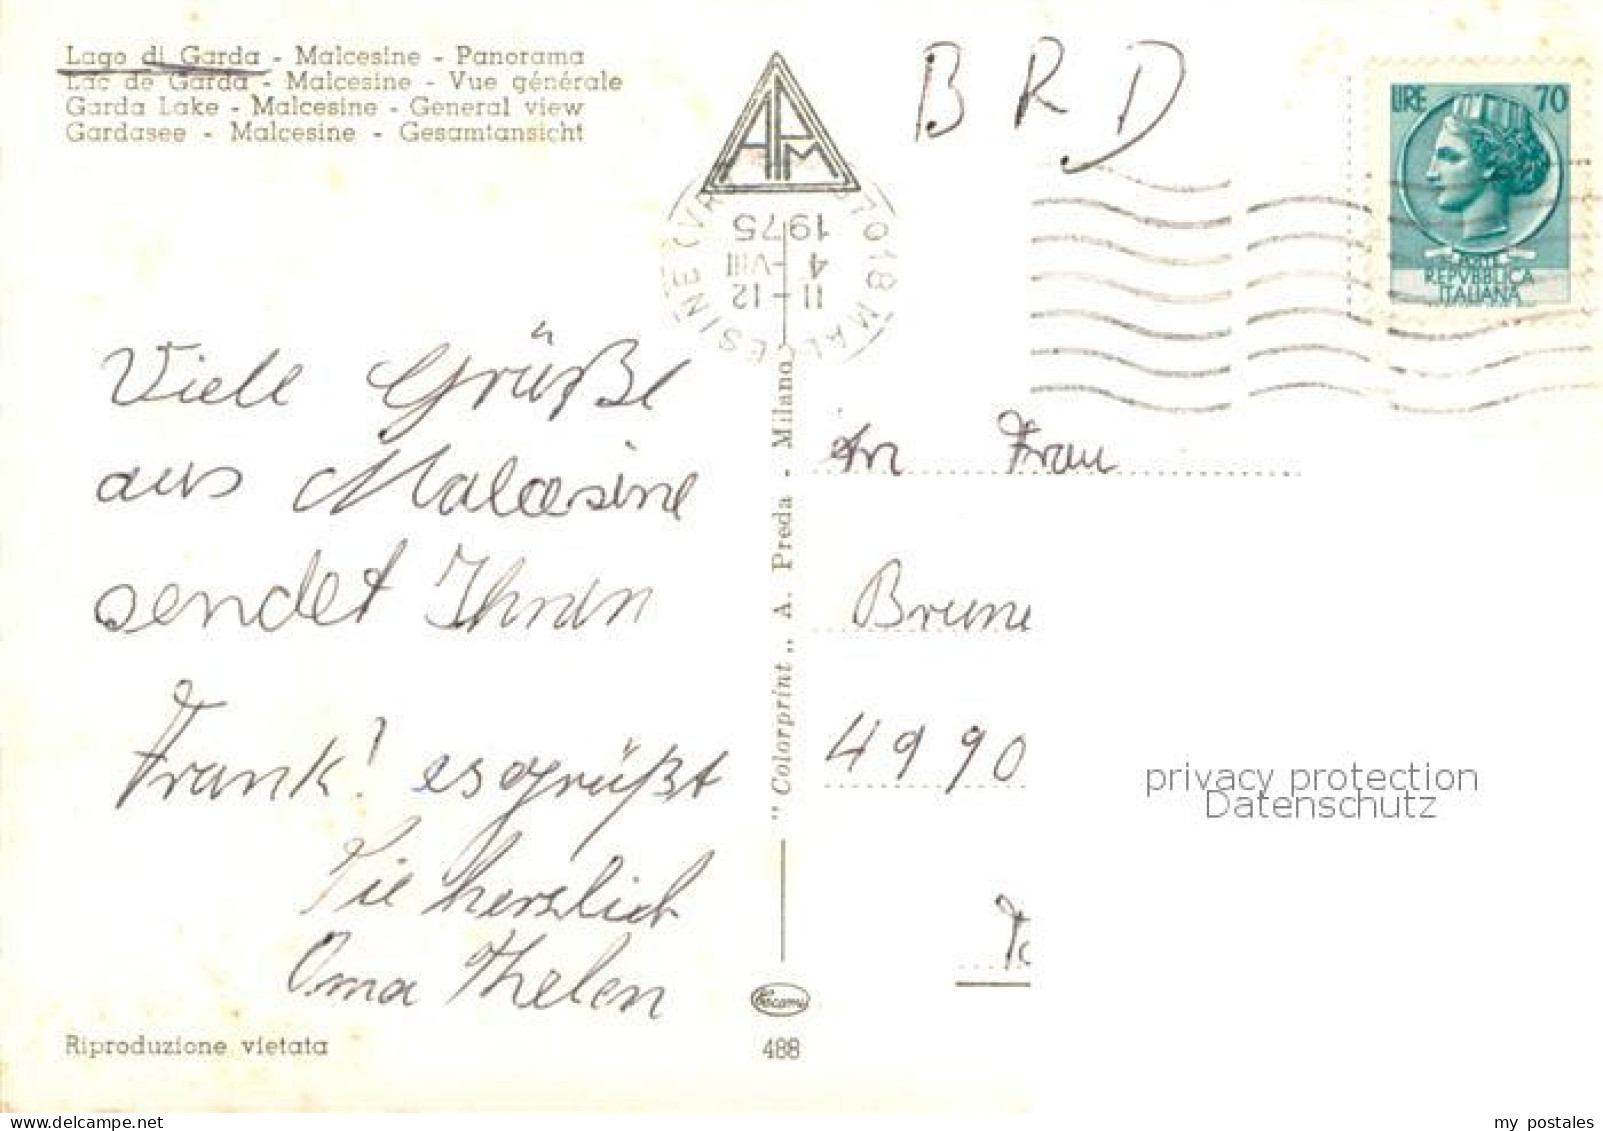 Lago di Garda - Malcesine - Panorama
Lac de Garda - Malcesine - Vue générale
Garda Lake - Malcesine - General view
Gardasee - Malcesine - Gesamtansicht
APM
BRD
LIRE 70
REPVBBLICA
ITALIANA
37018 MALCESINE (VR)
11-12
4 -VIII
1975
Viele Grüße
aus Malcesine
sendet Ihnen
Frank! es grüßt
Sie herzlich
Oma Thelen
"Colorprint,, A. Preda - Milano
An Frau
Brune
4990
privacy protection
Datenschutz
Riproduzione vietata
488
my postales